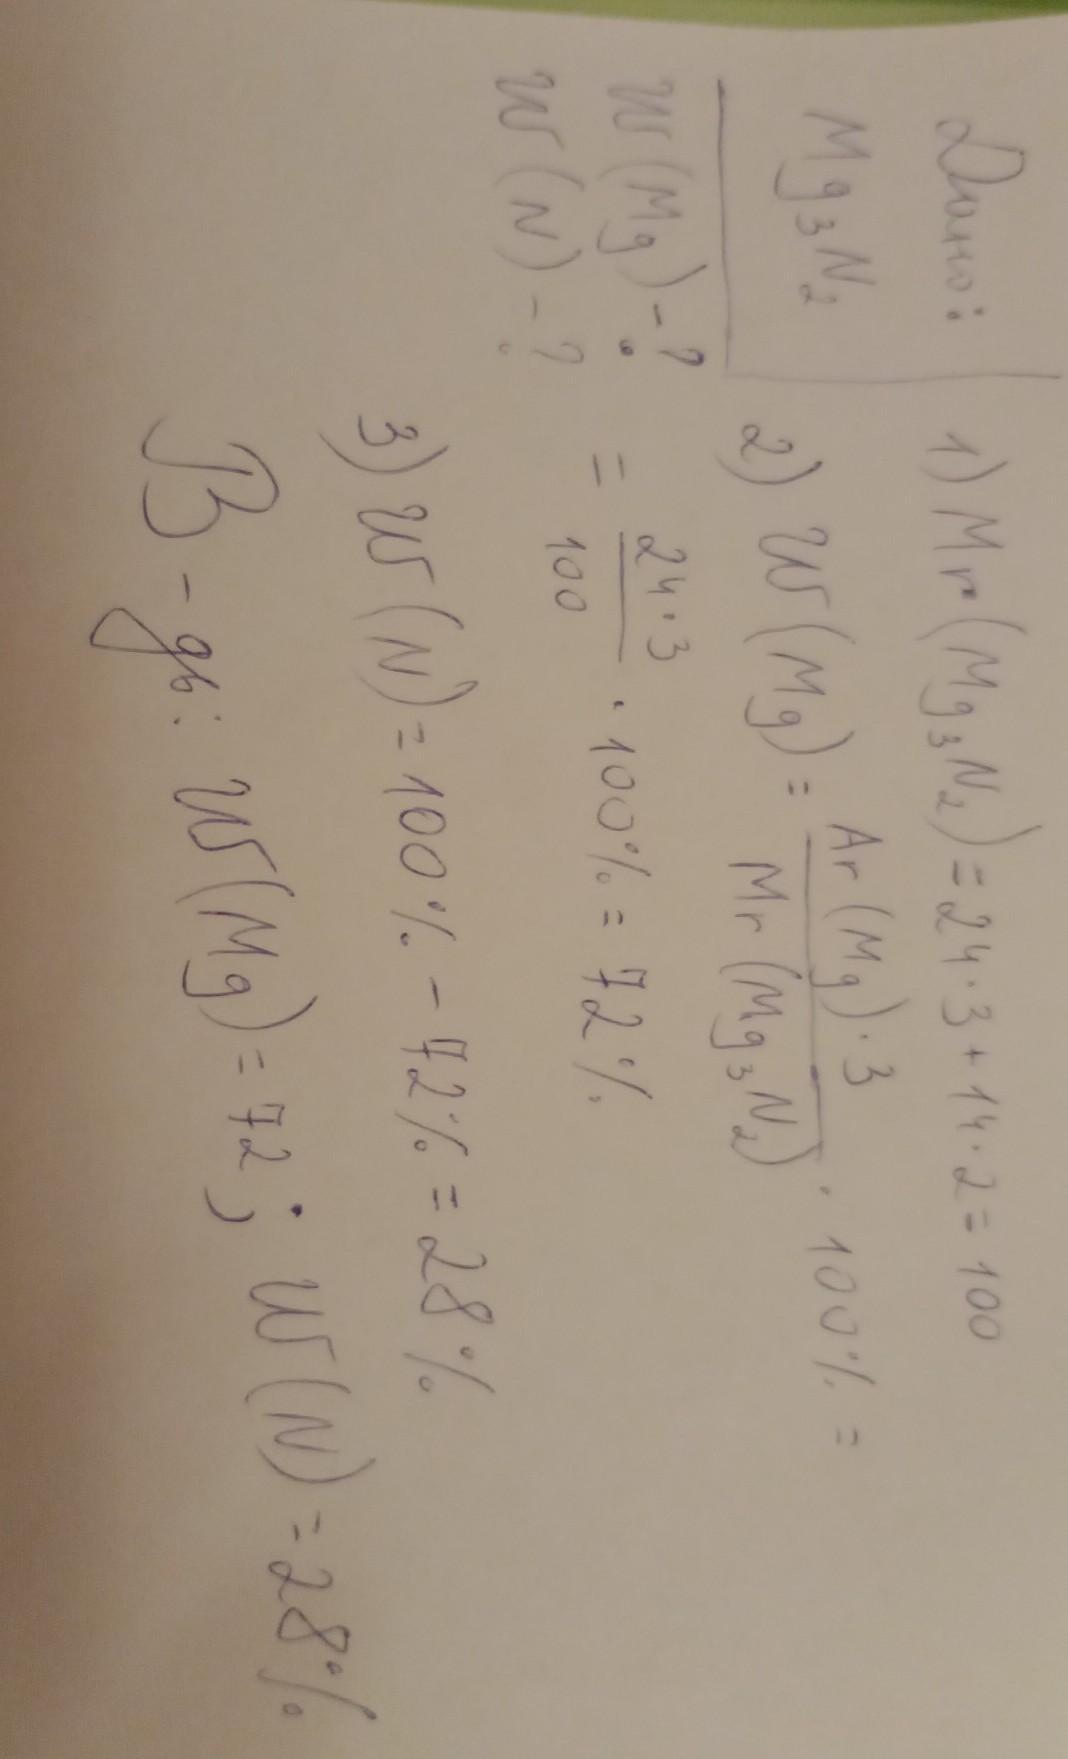 Дано:
Mg₃N₂
W(Mg) - ?
W(N) - ?
1) Mr(Mg₃N₂) = 24 · 3 + 14 · 2 = 100
2) W(Mg) = Ar(Mg) · 3 / Mr(Mg₃N₂) · 100% =
= 24 · 3 / 100 · 100% = 72%
3) W(N) = 100% - 72% = 28%
В-дь: W(Mg) = 72; W(N) = 28%